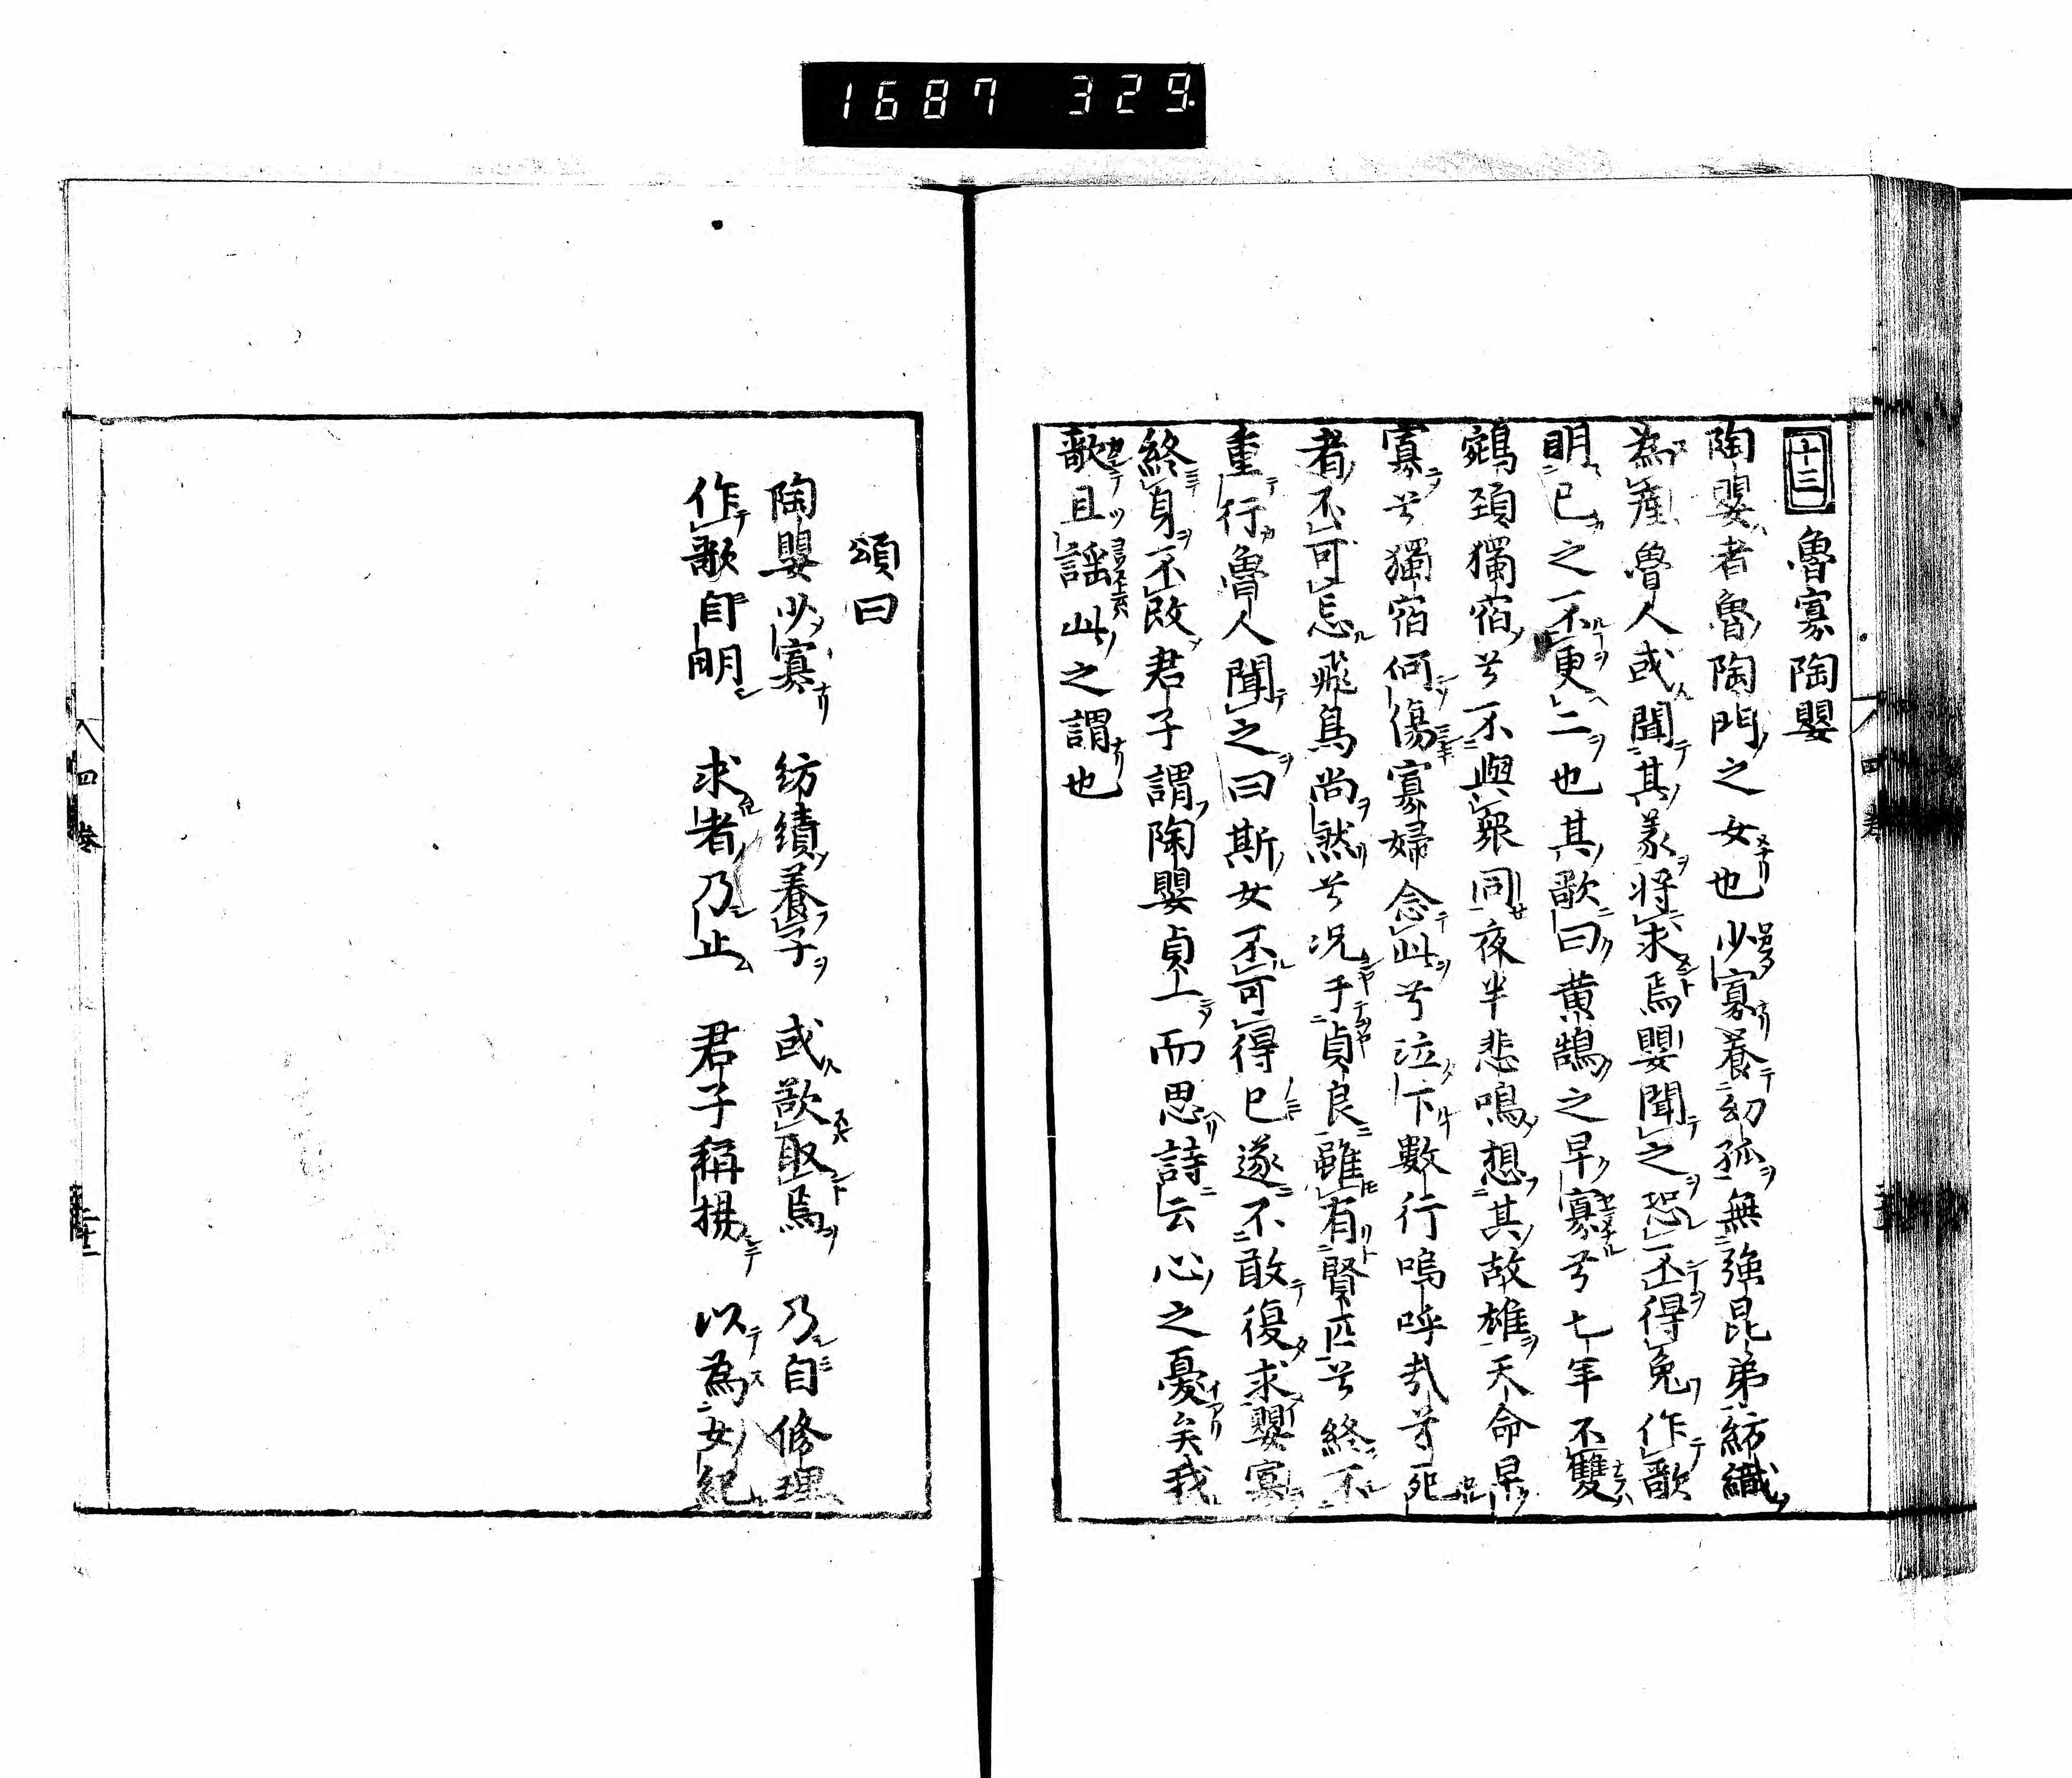 1687 329
十三 魯寡陶嬰
陶嬰者魯陶門之女也少寡養幼孤無強昆弟紡織
為産魯人或聞其義将求焉嬰聞之恐不得免作歌
明已之不更二也其歌曰黄鵠之早寡兮七年不雙
鵷頚獨宿兮不與衆同夜半悲鳴想其故雄天命早
寡兮獨宿何傷寡婦念此兮泣下數行嗚呼哉兮死
者不可忘飛鳥尚然兮况于貞良雖有賢匹兮終不
重行魯人聞之曰斯女不可得已遂不敢復求嬰寡
終身不改君子謂陶嬰貞一而思詩云心之憂矣我
歌且謡此之謂也
四巻
頌曰
陶嬰少寡 紡績養子 或欲取焉 乃自修理
作歌自明 求者乃止 君子稱揚 以為女紀
四巻 二十一